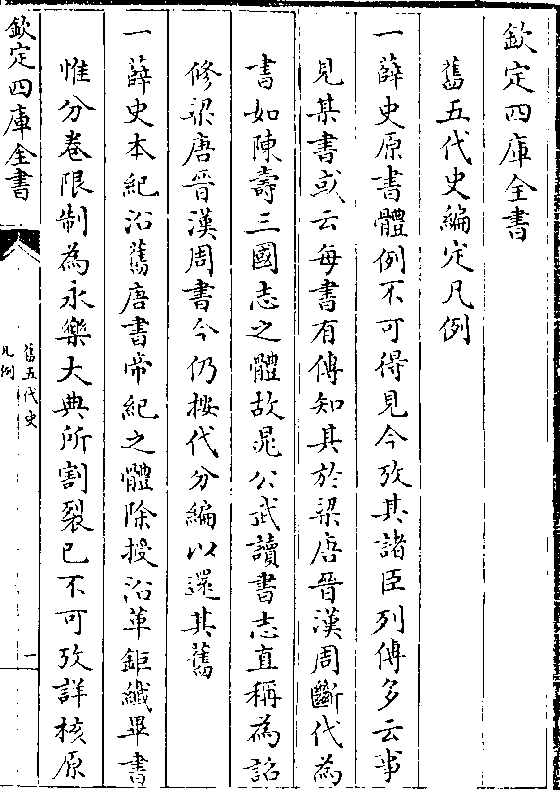 欽定四庫全書
舊五代史編定凡例
一薛史原書體例不可得見今攷其諸臣列傳多云事
見某書或云每書有傳知其於梁唐晉漢周斷代為
書如陳壽三國志之體故晁公武讀書志直稱為詔
修梁唐晉漢周書今仍按代分編以還其舊
一薛史本紀沿舊唐書帝紀之體除授沿革鉅纖畢書
惟分卷限制為永樂大典所割裂已不可攷詳核原
欽定四庫全書
舊五代史
凡例
一